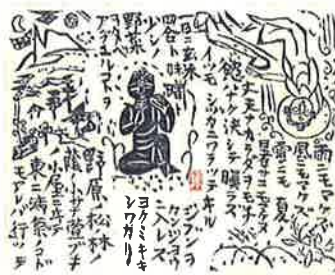 雨ニモマケズ
風ニモマケズ
雪ニモ夏ノ
暑サニモマケヌ
丈夫ナカラダヲモチ
慾ハナク決シテ瞋ラズ
イツモシヅカニワラッテヰル
一日ニ玄米
四合ト味噌ト
少シノ
野菜
ヲタベ
アラユルコトヲ
ジブンヲ
カンジョウ
ニ入レズ
ヨクミキキ
シワカリ
野原ノ松林ノ
蔭ノ小サナ萱ブキ
小屋ニヰテ
東ニ病気ノコド
モアレバ行ッテ